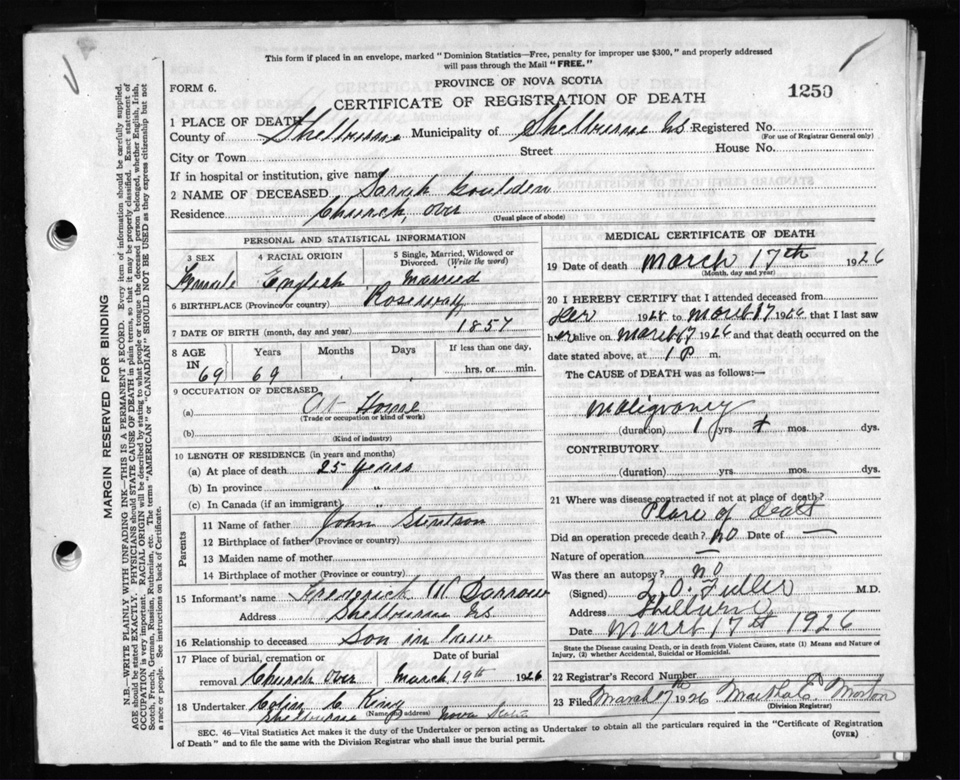 This form if placed in an envelope, marked "Dominion Statistics—Free, penalty for improper use $300," and properly addressed
will pass through the Mail "FREE."
PROVINCE OF NOVA SCOTIA
FORM 6.
CERTIFICATE OF REGISTRATION OF DEATH
1250
1 PLACE OF DEATH
County of Shelburne Municipality of Shelburne NS Registered No.
(For use of Registrar General only)
City or Town Street House No.
If in hospital or institution, give name
2 NAME OF DECEASED Sarah Goulden
Residence Church Over
(Usual place of abode)
PERSONAL AND STATISTICAL INFORMATION
3 SEX Female
4 RACIAL ORIGIN English
5 Single, Married, Widowed or Divorced. (Write the word) Married
6 BIRTHPLACE (Province or country) Roseway
7 DATE OF BIRTH (month, day and year) 1857
8 AGE IN 69 Years 69 Months Days If less than one day, hrs. or min.
9 OCCUPATION OF DECEASED
(a) At Home
(Trade or occupation or kind of work)
(b)
(Kind of industry)
10 LENGTH OF RESIDENCE (in years and months)
(a) At place of death 25 years
(b) In province "
(c) In Canada (if an immigrant) "
Parents
11 Name of father John Stentson
12 Birthplace of father (Province or country)
13 Maiden name of mother
14 Birthplace of mother (Province or country)
15 Informant's name Frederick W Darrow
Address Shelburne NS
16 Relationship to deceased Son in law
17 Place of burial, cremation or removal Church Over Date of burial March 19th 1926
18 Undertaker Colin C King
Shelburne (Name and address) Nova Scotia
MEDICAL CERTIFICATE OF DEATH
19 Date of death March 17th 1926
(Month, day and year)
20 I HEREBY CERTIFY that I attended deceased from
192 to March 17 1926 that I last saw
her alive on March 17 1926 and that death occurred on
date stated above, at 1 P m.
The CAUSE of DEATH was as follows:—
Malignancy
(duration) 1 yrs. mos. dys.
CONTRIBUTORY
(duration) yrs. mos. dys.
21 Where was disease contracted if not at place of death?
Place of Death
Did an operation precede death? no Date of —
Nature of operation —
Was there an autopsy? no
(Signed) L. O. Fuller M.D.
Address Shelburne
Date March 17th 1926
State the Disease causing Death, or in death from Violent Causes, state (1) Means and Nature of
Injury, (2) whether Accidental, Suicidal or Homicidal.
22 Registrar's Record Number
23 Filed March 17th 1926 Martha E Morton
(Division Registrar)
SEC. 46—Vital Statistics Act makes it the duty of the Undertaker or person acting as Undertaker to obtain all the particulars required in the "Certificate of Registration
of Death" and to file the same with the Division Registrar who shall issue the burial permit.
(OVER)
MARGIN RESERVED FOR BINDING
N.B.—WRITE PLAINLY WITH UNFADING INK—THIS IS A PERMANENT RECORD. Every item of information should be carefully supplied.
AGE should be stated EXACTLY. PHYSICIANS should STATE CAUSE OF DEATH in plain terms, so that it may be properly classified. Exact statement of
OCCUPATION is very important. RACIAL ORIGIN will be described by stating to what people or tongue the deceased person belonged, whether English, Irish,
Scotch, French, German, Russian, Ruthenian, etc. The terms "AMERICAN" or "CANADIAN" SHOULD NOT BE USED as they express citizenship but not
a race or people. See instructions on back of Certificate.